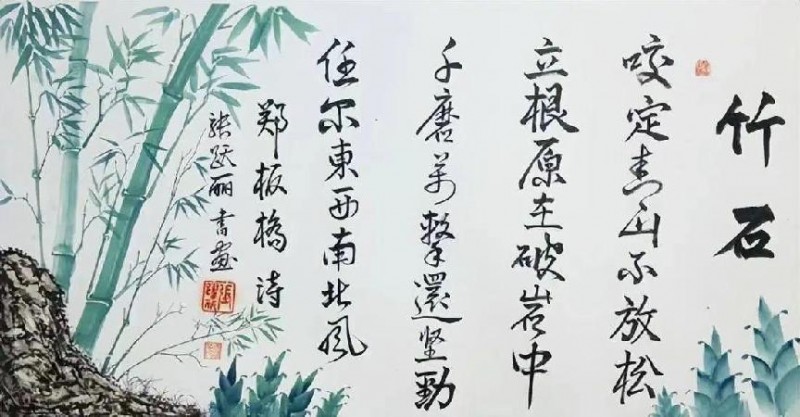 竹石
咬定青山不放松
立根原在破岩中
千磨萬擊還坚勁
任尔東西南北风
郑板橋诗
張跃丽书画